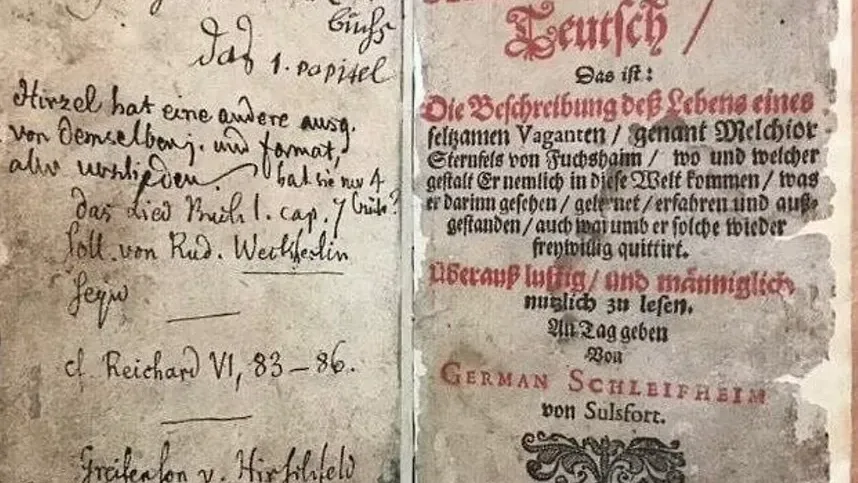 buchs
Das 1. Papitel
Hirzel hat eine andere ausg.
von demselben j. und format,
aber
hat sie nur 4
das Lied Buch 1. cap. 7
soll von Rud. Weckherlin
seyn
cf. Reichard VI, 83 – 86.
Greifenson v. Hirschfeld
Teutsch /
Das ist:
Die Beschreibung deß Lebens eines
seltzamen Vaganten / genant Melchior
Sternfels von Fuchshaim / wo und welcher
gestalt Er nemlich in diese Welt kommen / was
er darinn gesehen / gelernet / erfahren und auß-
gestanden / auch warumb er solche wieder
freywillig quittirt.
Überauß lustig / und männiglich
nutzlich zu lesen.
An Tag geben
Von
GERMAN SCHLEIFHEIM
von Sulsfort.